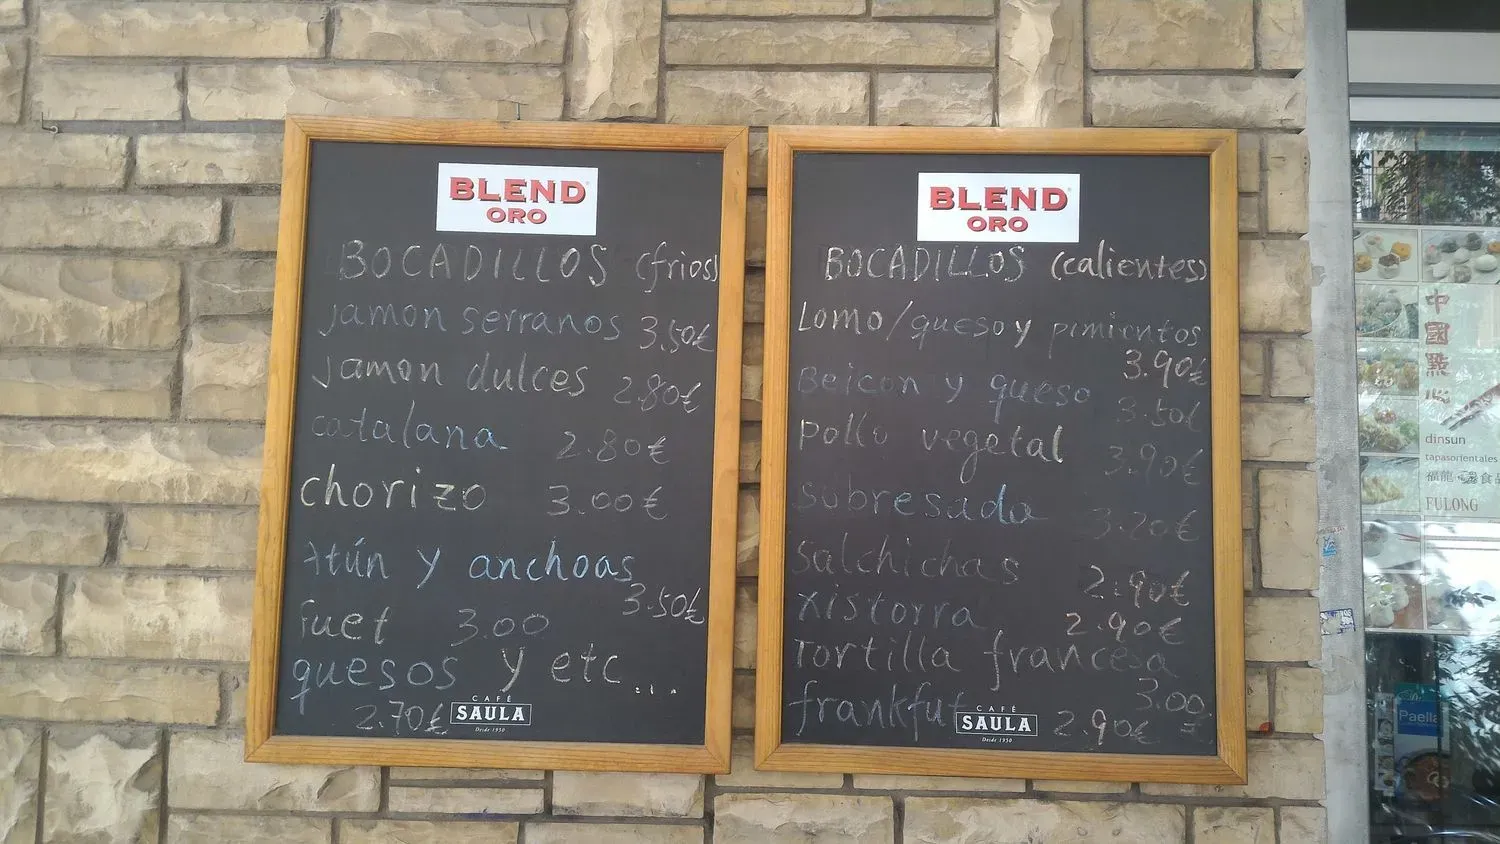 BLEND
ORO
BOCADILLOS (frios)
Jamon serranos 3.50€
Jamon dulces 2.80€
catalana 2.80€
chorizo 3.00€
Atún y anchoas
3.50€
Fuet 3.00
quesos y etc...
2.70€
CAFÉ
SAULA
Desde 1950
BLEND
ORO
BOCADILLOS (calientes)
Lomo/queso y pimientos
3.90€
Beicon y queso
3.50€
pollo vegetal
3.90€
Sobresada
3.20€
Salchichas
2.90€
xistorra
2.90€
Tortilla francesa
3.00
€
frankfut 2.90€
CAFÉ
SAULA
Desde 1950
中
國
點
心
dinsun
tapasorientales
福龍
食品
FULONG
Paella